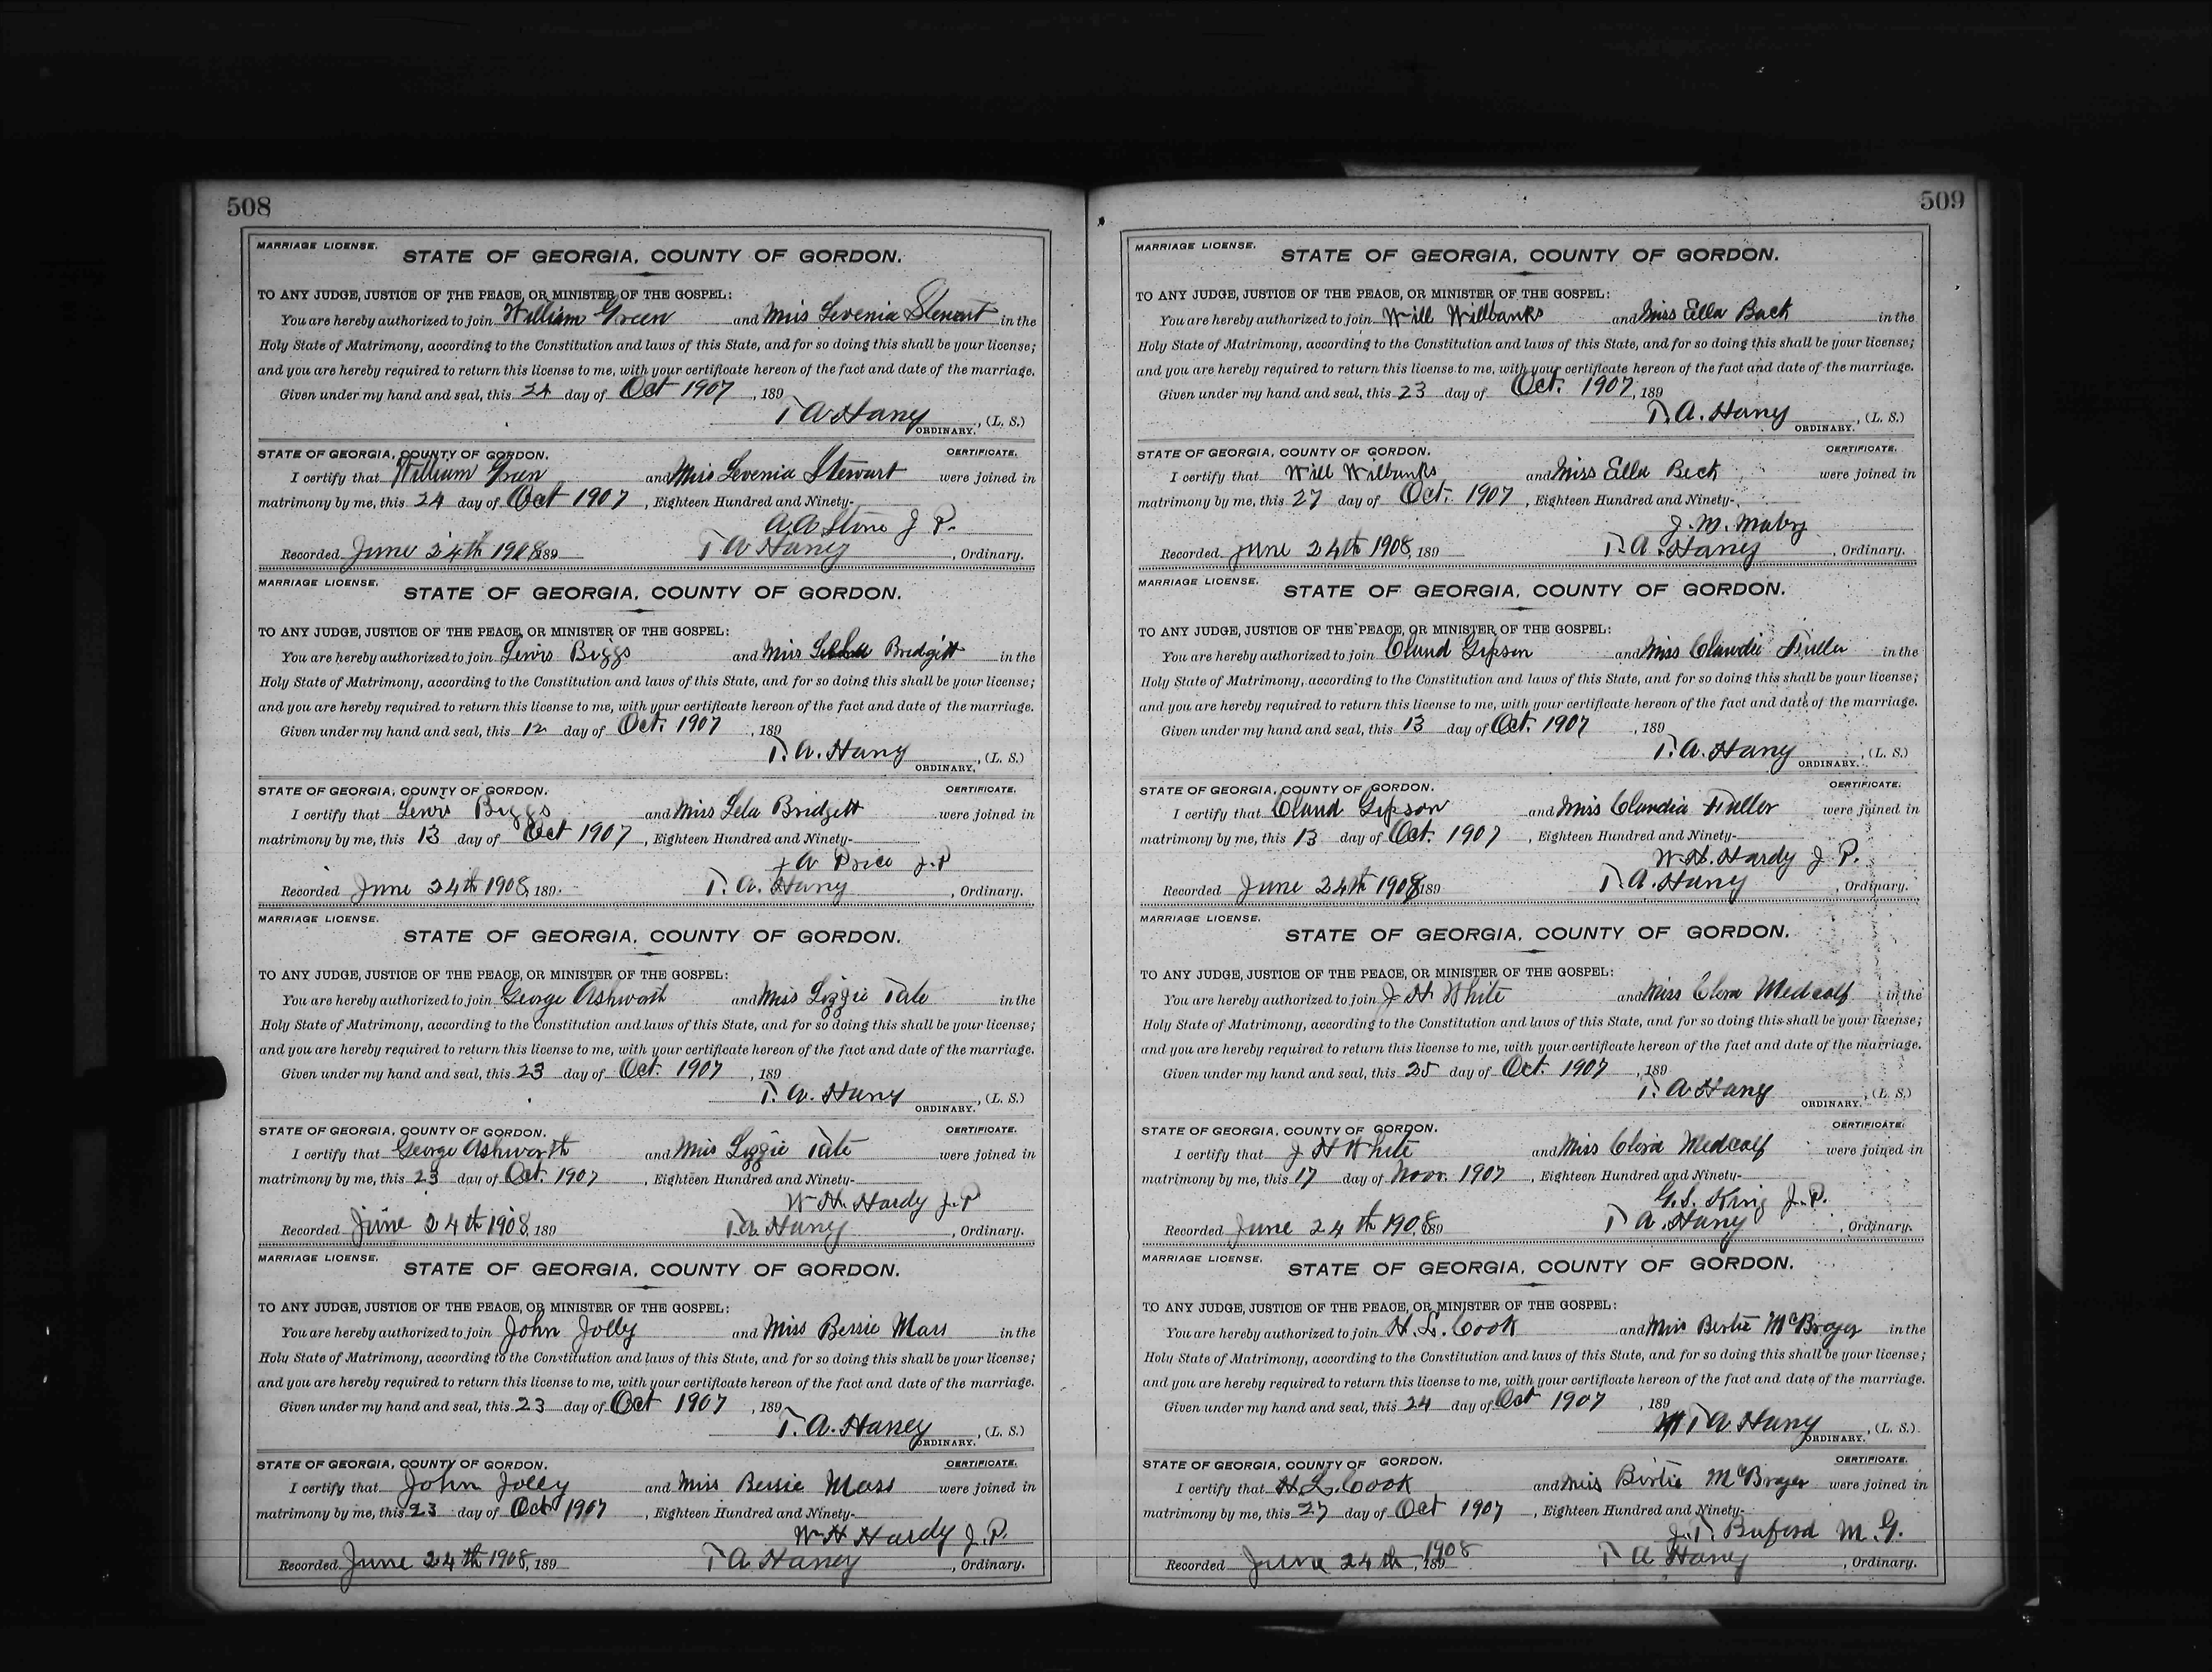 508
MARRIAGE LICENSE.
STATE OF GEORGIA, COUNTY OF GORDON.
TO ANY JUDGE, JUSTICE OF THE PEACE, OR MINISTER OF THE GOSPEL:
You are hereby authorized to join William Green and Miss Levenia Stewart in the
Holy State of Matrimony, according to the Constitution and laws of this State, and for so doing this shall be your license;
and you are hereby required to return this license to me, with your certificate hereon of the fact and date of the marriage.
Given under my hand and seal, this 24 day of Oct 1907, 189
T A Haney, (L. S.)
ORDINARY.
STATE OF GEORGIA, COUNTY OF GORDON. CERTIFICATE.
I certify that William Green and Miss Levenia Stewart were joined in
matrimony by me, this 24 day of Oct 1907, Eighteen Hundred and Ninety-
A A Stone J P.
Recorded June 24th 1908, 189 T A Haney, Ordinary.
MARRIAGE LICENSE.
STATE OF GEORGIA, COUNTY OF GORDON.
TO ANY JUDGE, JUSTICE OF THE PEACE, OR MINISTER OF THE GOSPEL:
You are hereby authorized to join Lewis Biggs and Miss Bridgitt in the
Holy State of Matrimony, according to the Constitution and laws of this State, and for so doing this shall be your license;
and you are hereby required to return this license to me, with your certificate hereon of the fact and date of the marriage.
Given under my hand and seal, this 12 day of Oct. 1907, 189
T. A. Haney, (L. S.)
ORDINARY.
STATE OF GEORGIA, COUNTY OF GORDON. CERTIFICATE.
I certify that Lewis Biggs and Miss Lela Bridgett were joined in
matrimony by me, this 13 day of Oct 1907, Eighteen Hundred and Ninety-
A Price J.P
Recorded June 24th 1908, 189 T. A. Haney, Ordinary.
MARRIAGE LICENSE.
STATE OF GEORGIA, COUNTY OF GORDON.
TO ANY JUDGE, JUSTICE OF THE PEACE, OR MINISTER OF THE GOSPEL:
You are hereby authorized to join George Ashworth and Miss Lizzie Tate in the
Holy State of Matrimony, according to the Constitution and laws of this State, and for so doing this shall be your license;
and you are hereby required to return this license to me, with your certificate hereon of the fact and date of the marriage.
Given under my hand and seal, this 23 day of Oct. 1907, 189
T. A. Haney, (L. S.)
ORDINARY.
STATE OF GEORGIA, COUNTY OF GORDON. CERTIFICATE.
I certify that George Ashworth and Miss Lizzie Tate were joined in
matrimony by me, this 23 day of Oct. 1907, Eighteen Hundred and Ninety-
W. H. Hardy J.P
Recorded June 24th 1908, 189 T. A. Haney, Ordinary.
MARRIAGE LICENSE.
STATE OF GEORGIA, COUNTY OF GORDON.
TO ANY JUDGE, JUSTICE OF THE PEACE, OR MINISTER OF THE GOSPEL:
You are hereby authorized to join John Jolly and Miss Bessie Mass in the
Holy State of Matrimony, according to the Constitution and laws of this State, and for so doing this shall be your license;
and you are hereby required to return this license to me, with your certificate hereon of the fact and date of the marriage.
Given under my hand and seal, this 23 day of Oct 1907, 189
T. A. Haney, (L. S.)
ORDINARY.
STATE OF GEORGIA, COUNTY OF GORDON. CERTIFICATE.
I certify that John Jolly and Miss Bessie Mass were joined in
matrimony by me, this 23 day of Oct 1907, Eighteen Hundred and Ninety-
W H Hardy J. P.
Recorded June 24th 1908, 189 T A Haney, Ordinary.
509
MARRIAGE LICENSE.
STATE OF GEORGIA, COUNTY OF GORDON.
TO ANY JUDGE, JUSTICE OF THE PEACE, OR MINISTER OF THE GOSPEL:
You are hereby authorized to join Will Willbanks and Miss Ella Back in the
Holy State of Matrimony, according to the Constitution and laws of this State, and for so doing this shall be your license;
and you are hereby required to return this license to me, with your certificate hereon of the fact and date of the marriage.
Given under my hand and seal, this 23 day of Oct. 1907, 189
T. A. Haney, (L. S.)
ORDINARY.
STATE OF GEORGIA, COUNTY OF GORDON. CERTIFICATE.
I certify that Will Wilbanks and Miss Ella Beck were joined in
matrimony by me, this 27 day of Oct. 1907, Eighteen Hundred and Ninety-
J. M. Mabry
Recorded June 24th 1908, 189 T. A. Haney, Ordinary.
MARRIAGE LICENSE.
STATE OF GEORGIA, COUNTY OF GORDON.
TO ANY JUDGE, JUSTICE OF THE PEACE, OR MINISTER OF THE GOSPEL:
You are hereby authorized to join Claud Gipson and Miss Claudie Fuller in the
Holy State of Matrimony, according to the Constitution and laws of this State, and for so doing this shall be your license;
and you are hereby required to return this license to me, with your certificate hereon of the fact and date of the marriage.
Given under my hand and seal, this 13 day of Oct. 1907, 189
T. A. Haney, (L. S.)
ORDINARY.
STATE OF GEORGIA, COUNTY OF GORDON. CERTIFICATE.
I certify that Claud Gipson and Miss Claudia Fuller were joined in
matrimony by me, this 13 day of Oct. 1907, Eighteen Hundred and Ninety-
W. H. Hardy J. P.
Recorded June 24th 1908, 189 T. A. Haney, Ordinary.
MARRIAGE LICENSE.
STATE OF GEORGIA, COUNTY OF GORDON.
TO ANY JUDGE, JUSTICE OF THE PEACE, OR MINISTER OF THE GOSPEL:
You are hereby authorized to join J H White and Miss Clora Medcalf in the
Holy State of Matrimony, according to the Constitution and laws of this State, and for so doing this shall be your license;
and you are hereby required to return this license to me, with your certificate hereon of the fact and date of the marriage.
Given under my hand and seal, this 25 day of Oct. 1907, 189
T. A Haney, (L. S.)
ORDINARY.
STATE OF GEORGIA, COUNTY OF GORDON. CERTIFICATE.
I certify that J H White and Miss Clora Medcalf were joined in
matrimony by me, this 17 day of Novr. 1907, Eighteen Hundred and Ninety-
G. S. King J. P.
Recorded June 24th 1908, 189 T A. Haney, Ordinary.
MARRIAGE LICENSE.
STATE OF GEORGIA, COUNTY OF GORDON.
TO ANY JUDGE, JUSTICE OF THE PEACE, OR MINISTER OF THE GOSPEL:
You are hereby authorized to join H. L. Cook and Miss Bertie McBrayer in the
Holy State of Matrimony, according to the Constitution and laws of this State, and for so doing this shall be your license;
and you are hereby required to return this license to me, with your certificate hereon of the fact and date of the marriage.
Given under my hand and seal, this 24 day of Oct 1907, 189
T A Haney, (L. S.)
ORDINARY.
STATE OF GEORGIA, COUNTY OF GORDON. CERTIFICATE.
I certify that H. L. Cook and Miss Birtie McBrayer were joined in
matrimony by me, this 27 day of Oct 1907, Eighteen Hundred and Ninety-
J. T. Buford M. G.
Recorded June 24th 1908, 189 T A Haney, Ordinary.